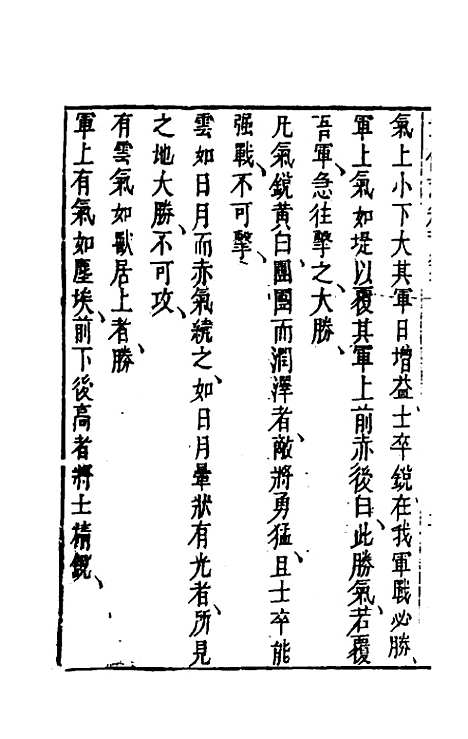 氣上小下大其軍日增益士卒銳在我軍戰必勝、
軍上氣如堤以覆其軍上前赤後白、此勝氣、若覆
吾軍、急往擊之、大勝、
凡氣銳黃白、團團而潤澤者、敵將勇猛、且士卒能
强戰、不可擊、
雲如日月而赤氣繞之、如日月暈狀有光者、所見
之地大勝、不可攻、
有雲氣如獸居上者、勝
軍上有氣如塵埃、前下後高者將士精銳、